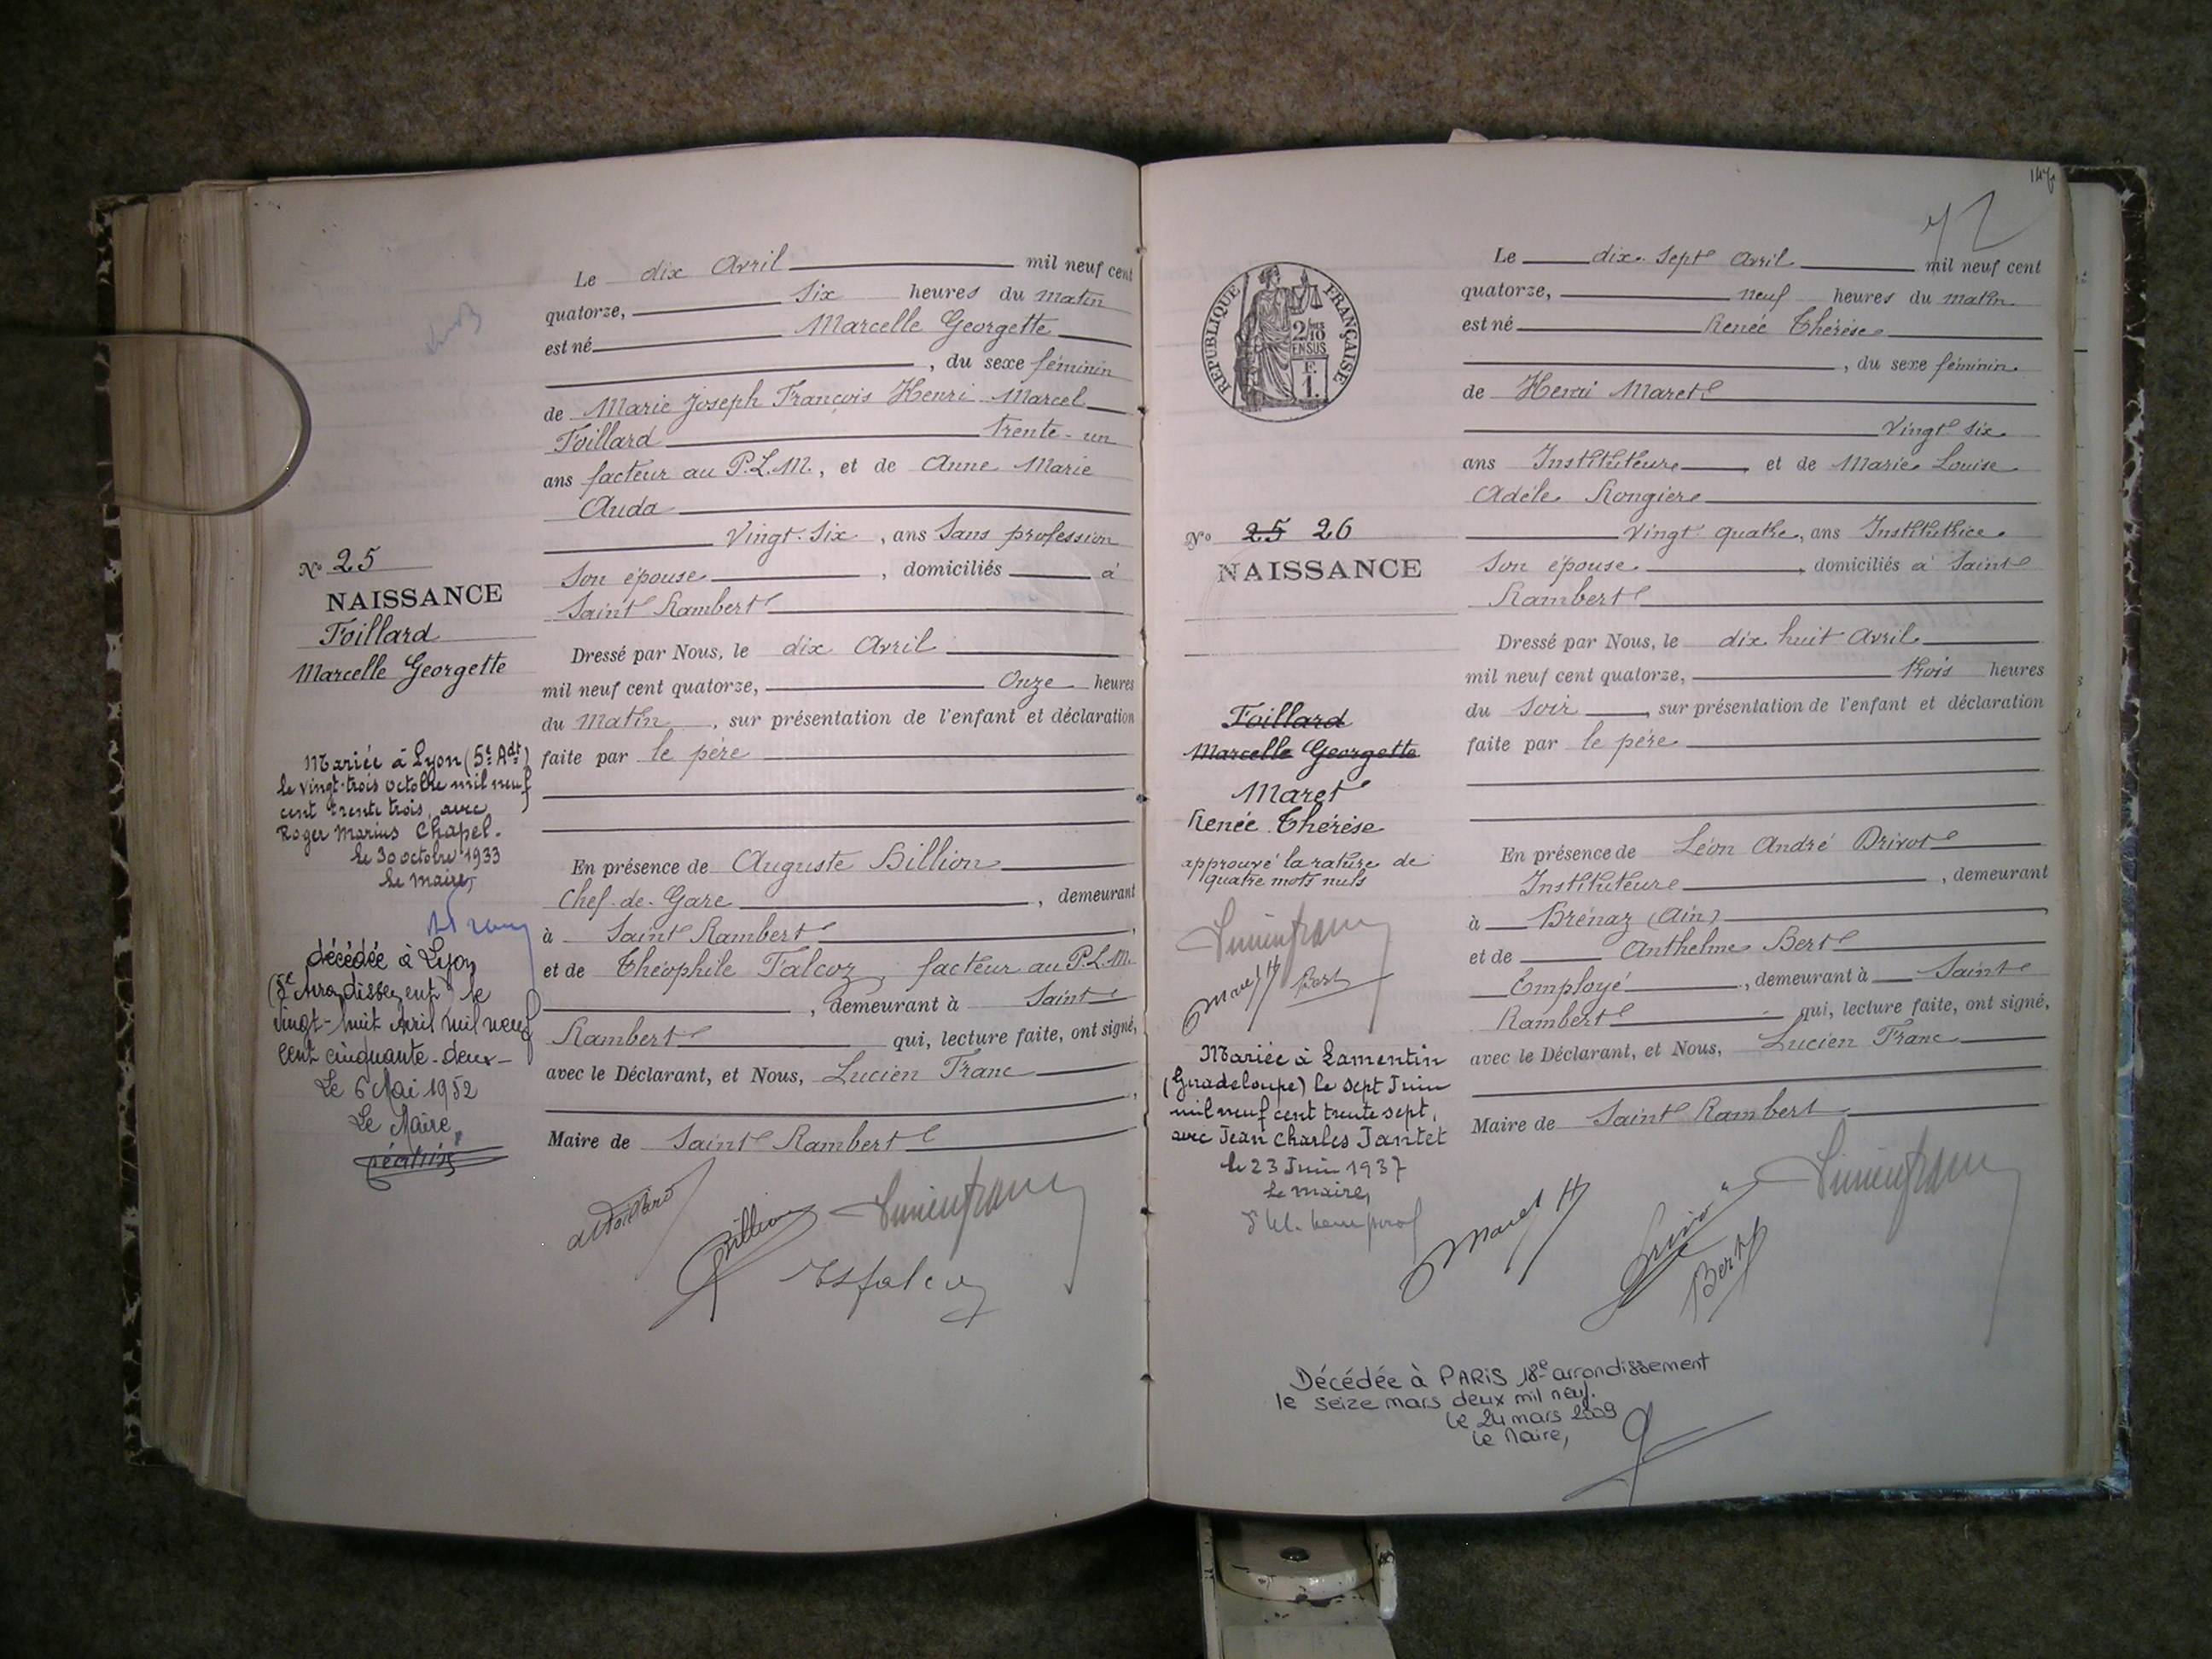 Le dix Avril mil neuf cent
quatorze, Six heures du matin
est né Marcelle Georgette
, du sexe féminin
de Marie Joseph François Henri Marcel
Foillard trente-un
ans facteur au P.L.M., et de Anne Marie
Auda
Vingt-Six, ans Sans profession
Son épouse, domiciliés à
Saint Rambert
Dressé par Nous, le dix Avril
mil neuf cent quatorze, Onze heures
du Matin, sur présentation de l'enfant et déclaration
faite par le père
En présence de Auguste Billion
Chef-de-Gare, demeurant
à Saint Rambert,
et de Théophile Falcoz, facteur au P.L.M.
, demeurant à Saint
Rambert qui, lecture faite, ont signé,
avec le Déclarant, et Nous, Lucien Franc
,
Maire de Saint Rambert
N° 25
NAISSANCE
Foillard
Marcelle Georgette
Mariée à Lyon (5e Adt)
le vingt-trois octobre mil neuf
cent trente trois, avec
Roger Marius Chapel.
le 30 octobre 1933
Le maire,
décédée à Lyon
(5e Arrondissement) le
vingt-huit Avril mil neuf
cent cinquante-deux-
Le 6 Mai 1952
Le Maire,
Billion
Lucien Franc
Falcoz
Le dix-Sept Avril mil neuf cent
quatorze, neuf heures du matin
est né Renée Thérèse
, du sexe féminin
de Henri Maret
Vingt Six
ans Instituteur, et de Marie Louise
Adèle Rongière
Vingt quatre, ans Institutrice
Son épouse, domiciliés à Saint
Rambert
Dressé par Nous, le dix huit Avril
mil neuf cent quatorze, trois heures
du Soir, sur présentation de l'enfant et déclaration
faite par le père
En présence de Léon André Drivot
Instituteur, demeurant
à Brénaz (Ain)
et de Anthelme Bert
Employé, demeurant à Saint
Rambert qui, lecture faite, ont signé,
avec le Déclarant, et Nous, Lucien Franc
Maire de Saint Rambert
REPUBLIQUE FRANÇAISE
2/10
EN SUS
F.
1.
N° 25 26
NAISSANCE
Foillard
Marcelle Georgette
Maret
Renée Thérèse
approuvé la rature de
quatre mots nuls
Lucien Franc
Maret H
Bert
Mariée à Lamentin
(Guadeloupe) le sept Juin
mil neuf cent trente sept,
avec Jean Charles Jantet
le 23 Juin 1937
Le maire,
Maret H
Bert
Lucien Franc
Décédée à PARIS 18e arrondissement
le seize mars deux mil neuf.
Le 24 mars 2009
Le Maire,